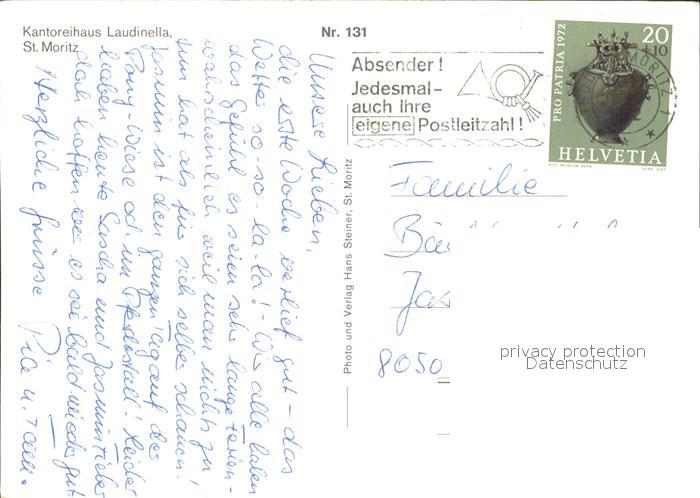 Kantoreihaus Laudinella,
St. Moritz
Nr. 131
Absender!
Jedesmal-
auch Ihre
eigene Postleitzahl!
PRO PATRIA 1972
20
+10
HELVETIA
MORITZ 1
Photo und Verlag Hans Steiner, St. Moritz
Unsere Lieben,
die erste Woche verlief gut – das
Wetter so-so-la-la! – Wir alle haben
das Gefühl es seien sehr lange Ferien –
wahrscheinlich weil man nichts zu
tun hat als für sich selber schauen!
Jasmin ist den ganzen Tag auf der
Pony-Wiese od. im Pferdestall! Leider
haben heute Sascha und Jasmin Fieber
doch hoffen wir es sei bald wieder gut
Herzliche Grüsse Pia u.
Familie
8050
privacy protection
Datenschutz